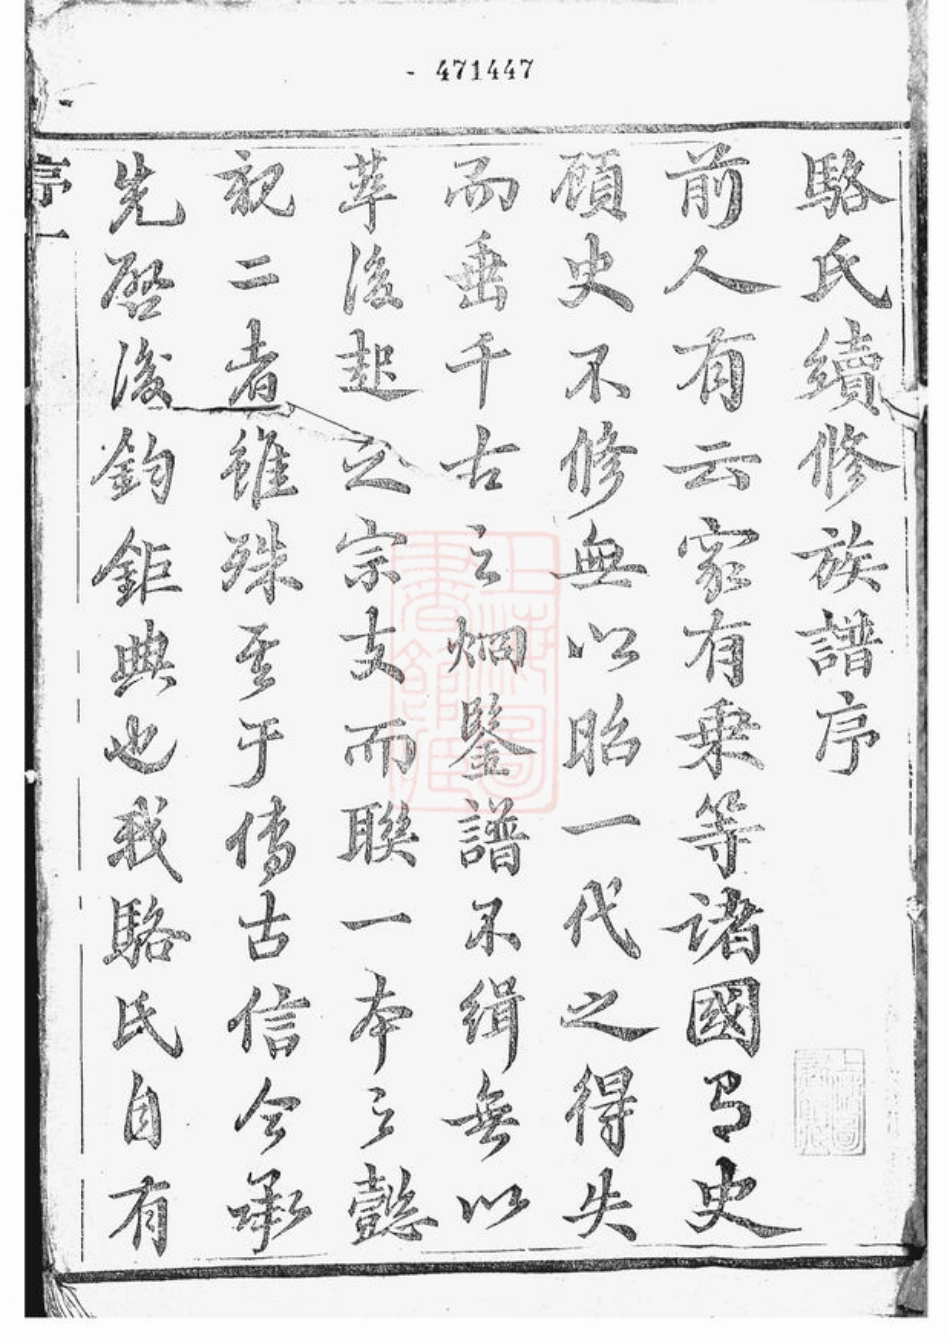 - 471447
駱氏續修族譜序
前人有云家有乘等諸國有史
顧史不修無以昭一代之得失
而垂千古之烱鑒譜不緝無以
萃後起之宗支而聯一本之懿
親二者雖殊至于傳古信今承
先啓後鈞鉅典也我駱氏自有
序一